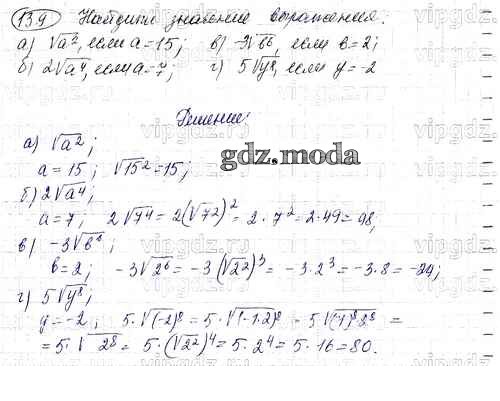 139 Найдите значение выражения:
а) √a², если a=15; в) -3√b⁶, если b=2;
б) 2√a⁴, если a=7; г) 5√y⁸, если y=-2
Решение:
а) √a²;
a=15; √15²=15;
gdz.moda
б) 2√a⁴;
a=7; 2√7⁴=2(√7²)²=2·7²=2·49=98;
в) -3√b⁶;
b=2; -3√2⁶=-3(√2²)³=-3·2³=-3·8=-24;
г) 5√y⁸;
y=-2; 5·√(-2)⁸=5·√(-1·2)⁸=5√(-1)⁸2⁸=
=5·√2⁸=5·(√2²)⁴=5·2⁴=5·16=80.